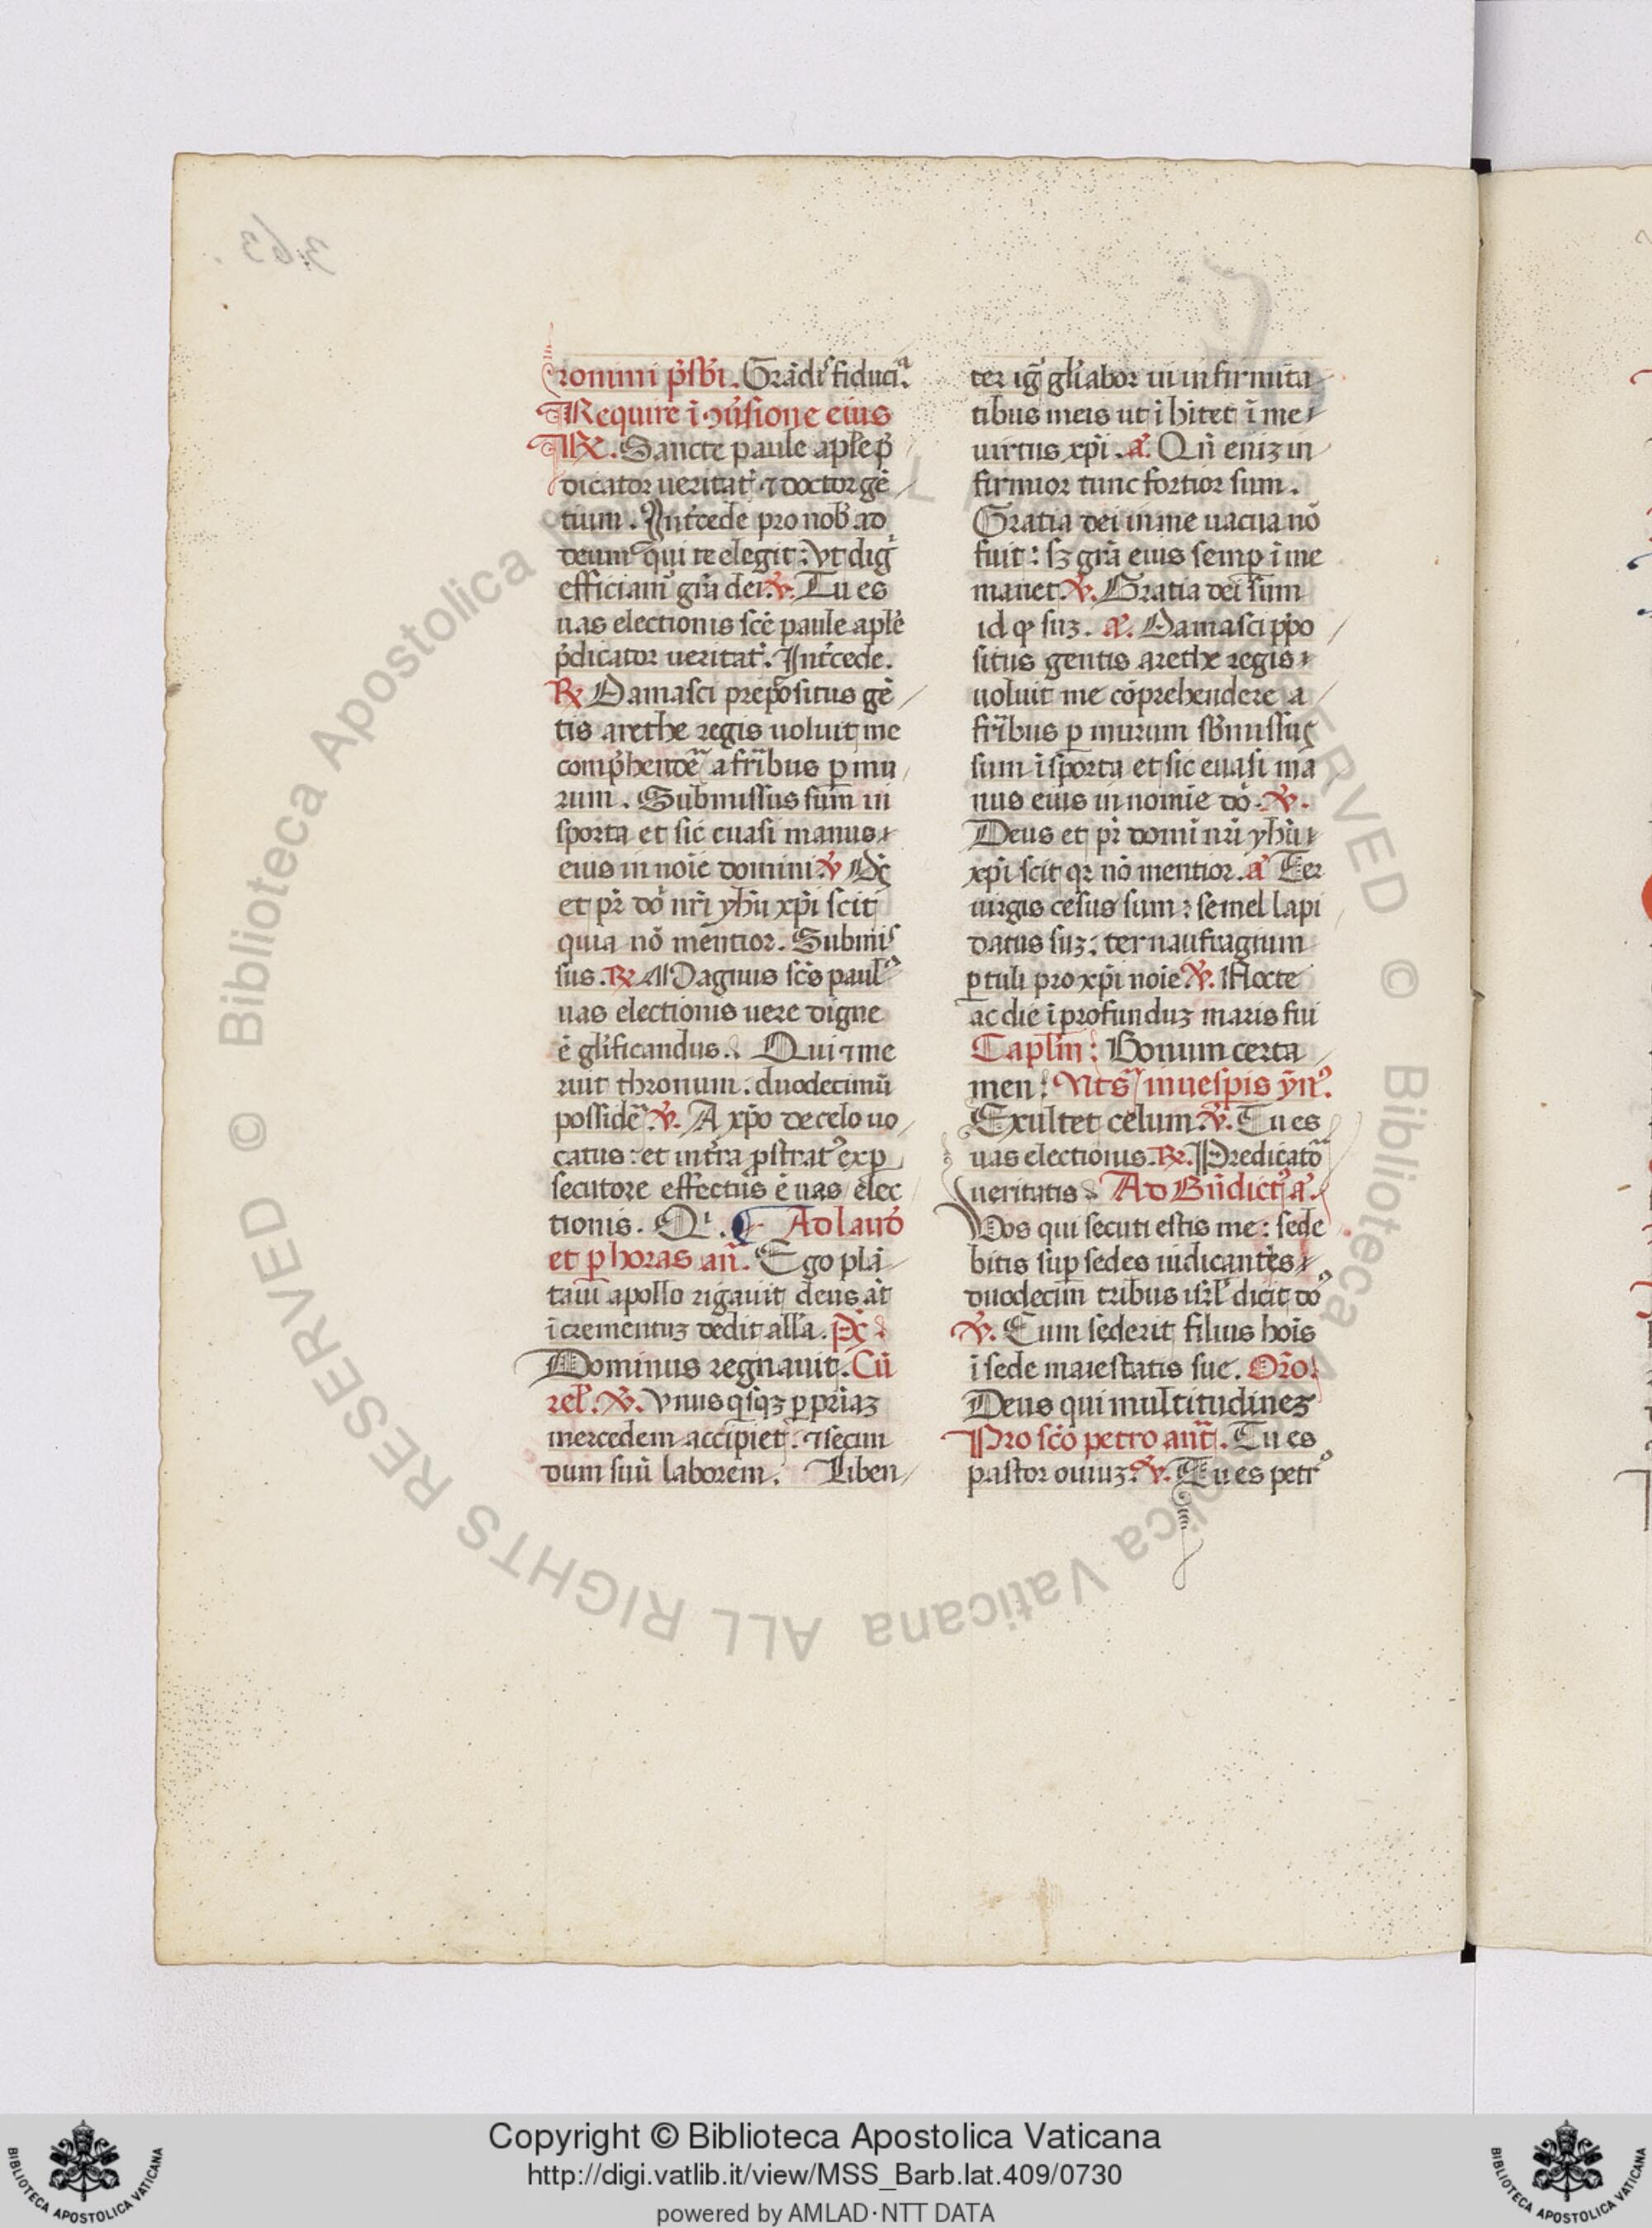 romini p̄sbr̄i. Grādis fiduciᵃ.
Require ī ꝯūsione eius
℟. Sancte paule aplē p̄
dicator ueritat᷒ ⁊ doctor gē
tium. Int̄cede pro nob̄ ad
deum qui te elegit: vt dig
efficiam᷒ gr̄a dei. ℣. Tu es
uas electionis scē paule aplē
p̄dicator ueritat᷒. Int̄cede.
℟ Damasci prepositus gē
tis arethe regis uoluit me
comp̄hendē a frībus ꝑ mu
rum. Submissus sum in
sporta et sic euasi manus
eius in noīe domini. ℣ Dꝰ
et pr̄ dō nr̄i yhū xp̄i scit
quia nō mentior. Submis
sus. ℟ Magnus scs̄ paulꝰ
uas electionis uere digne
ē gl̄ificandus. Qui ⁊ me
ruit thronum. duodecimū
possidē. ℣. A xp̄o de celo uo
catus: et in t̄ra ꝓstratꝰ ex ꝑ
secutore effectus ē uas elec
tionis. Qⁱ. Ad laud̄
et ꝑ horas an̄. Ego plā
taui apollo rigauit deus āt
īcrementuʒ dedit all̄a. Pꝰ
Dominus regnauit. Cū
rel᷒. ℣. Vnus qisqʒ ꝓpriaʒ
mercedem accipiet. ⁊ secun
dum suū laborem. Liben
ter igͥ gl̄iabor in infirmita
tibus meis ut īhītet ī me
uirtus xp̄i. a᷒. Qn̄ eniʒ in
firmior tunc fortior sum.
Gratia dei in me uacua nō
fuit: sʒ grā eius semꝑ ī me
manet. ℣. Gratia dei sum
id qͩ suʒ. a᷒. Damasci p̄po
situs gentis arethe regis
uoluit me cōprehendere a
frībus ꝑ murum sb̄missus
sum ī sporta et sic euasi ma
nus eius in nomīe dō. ℣.
Deus et pr̄ domī nr̄i yhū
xp̄i scit qꝛ nō mentior. a᷒ Ter
uirgis cesus sum: semel lapi
datus suʒ: ter naufragium
ꝑtuli pro xp̄i noīe. ℣. Nocte
ac die ī profunduʒ maris fui
Capl̄m: Bonum certa
men: Nt̄s in uesꝑis yn̄ꝰ.
Exultet celum. ℣. Tu es
uas electionis. ℟. Predicatō
ueritatis. Ad Bn̄dictꝰ a᷒.
Vos qui secuti estis me: sede
bitis suꝑ sedes iudicantes
duodecim tribus isrl̄ dicit dō
℣. Cum sederit filius hoīs
ī sede maiestatis sue. Oro.
Deus qui multitudineʒ
Pro scō petro ant̄. Tu es
pastor ouiuʒ. ℣. Tu es petrꝰ
363
© Biblioteca Apostolica Vaticana ALL RIGHTS RESERVED
Copyright © Biblioteca Apostolica Vaticana
http://digi.vatlib.it/view/MSS_Barb.lat.409/0730
powered by AMLAD·NTT DATA
BIBLIOTECA APOSTOLICA VATICANA
BIBLIOTECA APOSTOLICA VATICANA